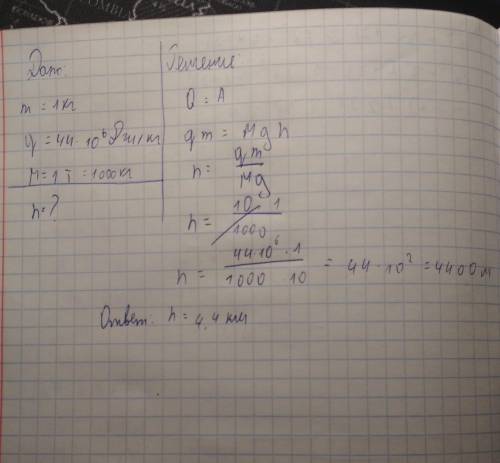 Дано:
m = 1 кг
q = 44 · 10⁶ Дж/кг
M = 1 т = 1000 кг
h = ?
Решение:
Q = A
qm = Mgh
h = qm / Mg
h = 44·10⁶ · 1 / 1000 10 = 44 · 10² = 4400 м
Ответ: h = 4,4 км